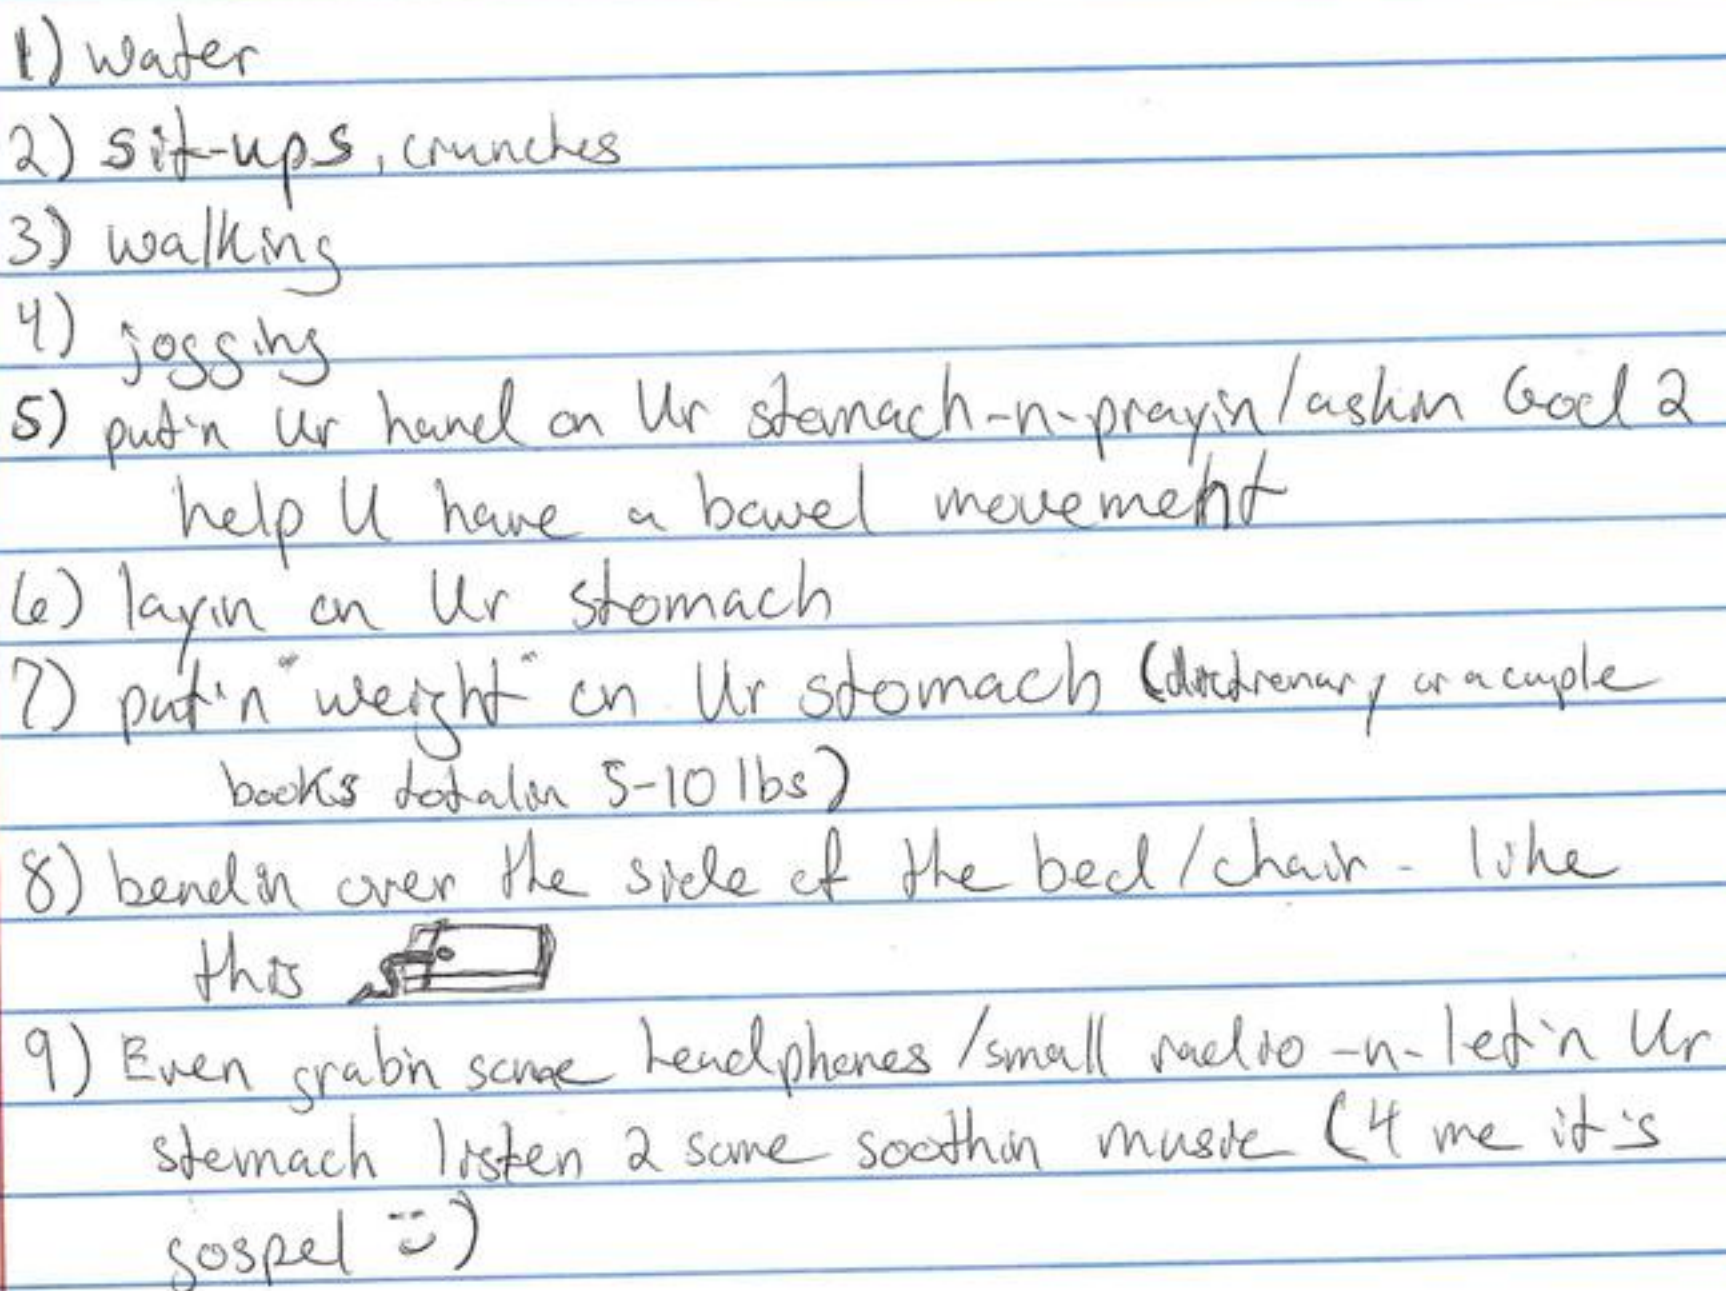 1) water
2) sit-ups, crunches
3) walking
4) jogging
5) put'n Ur hand on Ur stomach-n-prayin/askin God 2
help U have a bowel movement
6) layin on Ur stomach
7) put'n "weight" on Ur stomach (dictionary or a couple
books totalin 5-10 lbs)
8) bendin over the side of the bed/chair - like
this
9) Even grab'n some headphones/small radio -n- let'n Ur
stomach listen 2 some soothin music (4 me it's
gospel :))